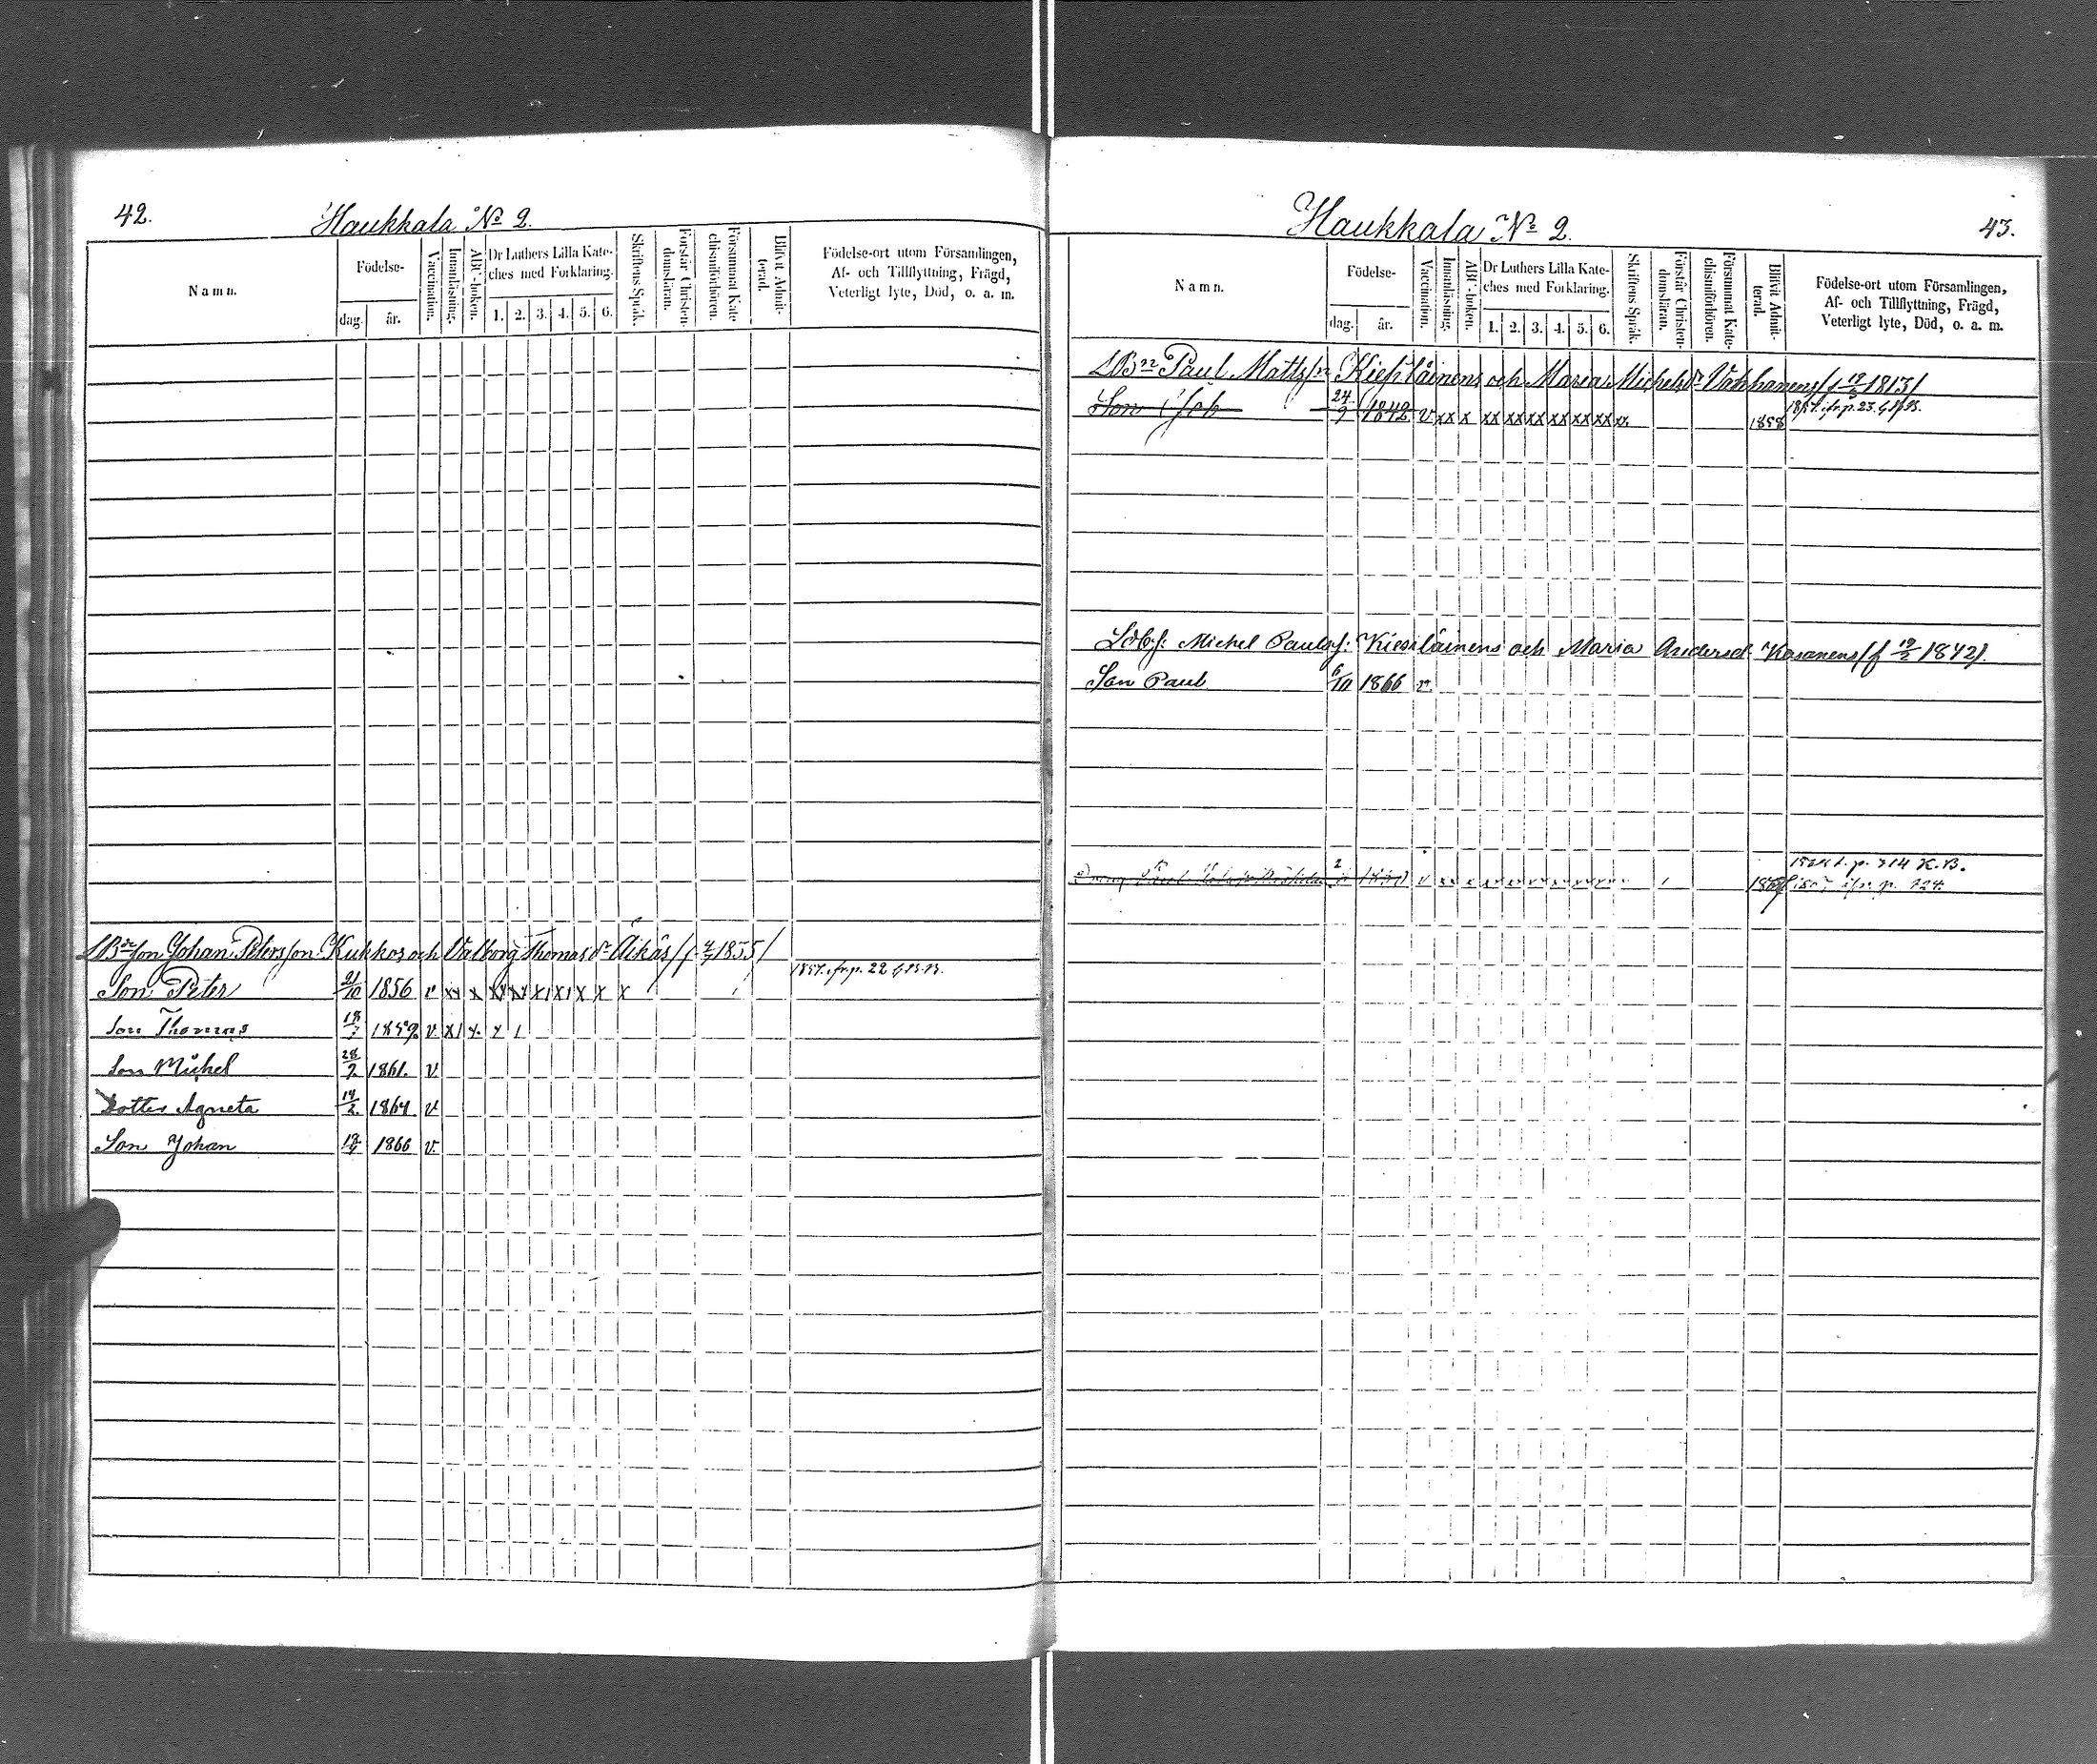 42.
Haukkala No 2.
Namn.
Födelse-
dag.
år.
Vaccination.
Innanläsning.
ABC-boken.
Dr Luthers Lilla Kate-
ches med Förklaring.
1. 2. 3. 4. 5. 6.
Skriftens Språk.
Förstår Christen-
domsläran.
Försummat Kate-
chismiförhören.
Blifvit Admit-
terad.
Födelse-ort utom Församlingen,
Af- och Tillflyttning, Frägd,
Veterligt lyte, Död, o. a. m.
LBdeson Johan Petersson Kukkos och Valborg Thomasdr Äikäs /f. 4/7 1835/
1857. ifr. p. 22 G.K.B.
Son Peter 21/10 1856 v xx x xx xx xi xi x x x
Son Thomas 18/7 1859 v xi x x i
Son Michel 28/7 1861. v
Dotter Agneta 14/2 1864 v
Son Johan 1866 v
Haukkala No 2.
43.
Namn.
Födelse-
dag.
år.
Vaccination.
Innanläsning.
ABC-boken.
Dr Luthers Lilla Kate-
ches med Förklaring.
1. 2. 3. 4. 5. 6.
Skriftens Språk.
Förstår Christen-
domsläran.
Försummat Kate-
chismiförhören.
Blifvit Admit-
terad.
Födelse-ort utom Församlingen,
Af- och Tillflyttning, Frägd,
Veterligt lyte, Död, o. a. m.
LBde Paul Mattss:n Kiesiläinens och Maria Michelsdr Vahhanens /f 1813/
Son Job 24/9 1842 v xx x xx xx xx xx xx xx x 1858 1857. ifr. p. 23. G.K.B.
Michel Paulss: Kiesiläinens och Maria Andersd. Kosanens /f 19/2 1842/.
Son Paul 6/10 1866 v.
Dreng Paul 2 v p. 314 K.B.
ifr. p. 124.